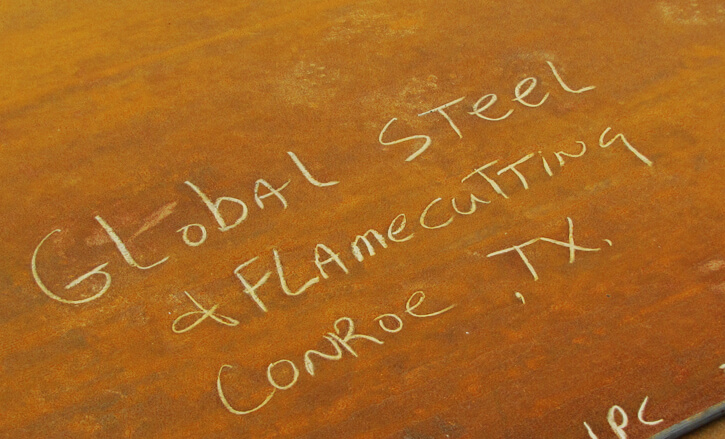 Global Steel
& Flamecutting
Conroe, TX.
1PC